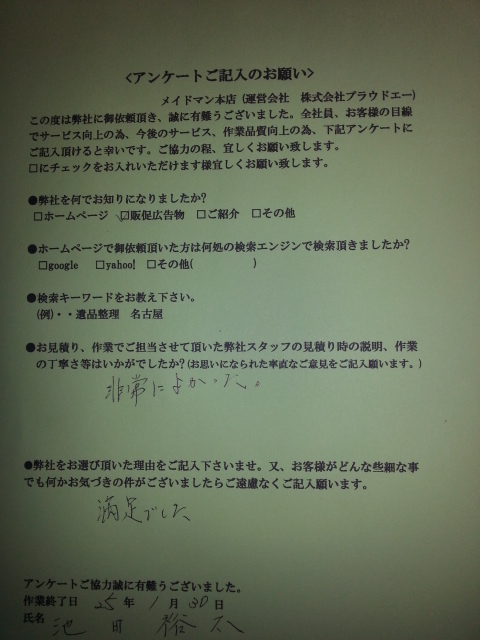 <アンケートご記入のお願い>
メイドマン本店 (運営会社 株式会社プラウドエー)
この度は弊社に御依頼頂き、誠に有難うございました。全社員、お客様の目線
でサービス向上の為、今後のサービス、作業品質向上の為、下記アンケートに
ご記入頂けると幸いです。ご協力の程、宜しくお願い致します。
□にチェックをお入れいただけます様宜しくお願い致します。
●弊社を何でお知りになりましたか?
□ホームページ ☑販促広告物 □ご紹介 □その他
●ホームページで御依頼頂いた方は何処の検索エンジンで検索頂きましたか?
□google □yahoo! □その他( )
●検索キーワードをお教え下さい。
(例)・・遺品整理 名古屋
●お見積り、作業でご担当させて頂いた弊社スタッフの見積り時の説明、作業
の丁寧さ等はいかがでしたか?(お思いになられた率直なご意見をご記入願います。)
非常によかった。
●弊社をお選び頂いた理由をご記入下さいませ。又、お客様がどんな些細な事
でも何かお気づきの件がございましたらご遠慮なくご記入願います。
満足でした
アンケートご協力誠に有難うございました。
作業終了日 25 年 1 月 30 日
氏名 池田 裕太